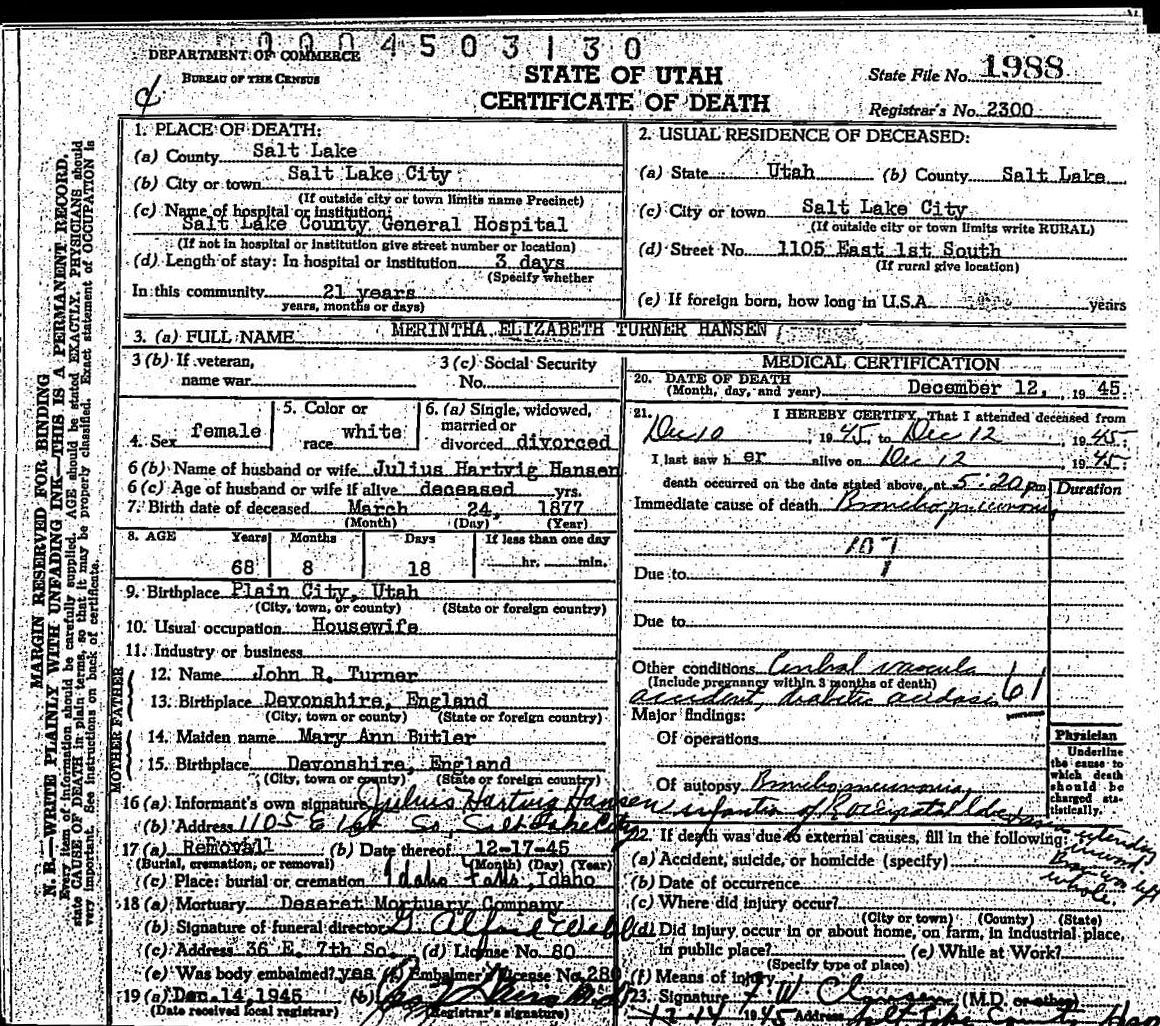 0004503130
DEPARTMENT OF COMMERCE
BUREAU OF THE CENSUS
STATE OF UTAH
CERTIFICATE OF DEATH
State File No. 1988
Registrar's No. 2300
MARGIN RESERVED FOR BINDING
N. B.—WRITE PLAINLY WITH UNFADING INK—THIS IS A PERMANENT RECORD.
Every item of information should be carefully supplied. AGE should be stated EXACTLY. PHYSICIANS should
state CAUSE OF DEATH in plain terms, so that it may be properly classified. Exact statement of OCCUPATION is
very important. See instructions on back of certificate.
1. PLACE OF DEATH:
(a) County Salt Lake
(b) City or town Salt Lake City
(If outside city or town limits name Precinct)
(c) Name of hospital or institution:
Salt Lake County General Hospital
(If not in hospital or institution give street number or location)
(d) Length of stay: In hospital or institution 3 days
(Specify whether
In this community 21 years
years, months or days)
2. USUAL RESIDENCE OF DECEASED:
(a) State Utah (b) County Salt Lake
(c) City or town Salt Lake City
(If outside city or town limits write RURAL)
(d) Street No. 1105 East 1st South
(If rural give location)
(e) If foreign born, how long in U.S.A. years
3. (a) FULL NAME MERINTHA ELIZABETH TURNER HANSEN
3 (b) If veteran,
name war
3 (c) Social Security
No.
4. Sex female
5. Color or
race white
6. (a) Single, widowed,
married or
divorced divorced
6 (b) Name of husband or wife Julius Hartvig Hansen
6 (c) Age of husband or wife if alive deceased yrs.
7. Birth date of deceased March 24, 1877
(Month) (Day) (Year)
8. AGE Years Months Days If less than one day
68 8 18 hr. min.
9. Birthplace Plain City, Utah
(City, town, or county) (State or foreign country)
10. Usual occupation Housewife
11. Industry or business
FATHER
12. Name John R. Turner
13. Birthplace Devonshire, England
(City, town or county) (State or foreign country)
MOTHER
14. Maiden name Mary Ann Butler
15. Birthplace Devonshire, England
(City, town or county) (State or foreign country)
16 (a). Informant's own signature Julius Hartvig Hansen
(b) Address 1105 E 1st So, Salt Lake City
17 (a) Removall (b) Date thereof 12-17-45
(Burial, cremation, or removal) (Month) (Day) (Year)
(c) Place: burial or cremation Idaho Falls, Idaho
18 (a) Mortuary Deseret Mortuary Company
(b) Signature of funeral director G Alfred Webb
(c) Address 36 E. 7th So. (d) License No. 80
(e) Was body embalmed? yes (f) Embalmer's License No. 280
19 (a) Dec. 14, 1945 (b)
(Date received local registrar) (Registrar's signature)
MEDICAL CERTIFICATION
20. DATE OF DEATH
(Month, day, and year) December 12, 1945.
21. I HEREBY CERTIFY, That I attended deceased from
Dec 10 1945, to Dec 12 1945:
I last saw her alive on Dec 12 1945:
death occurred on the date stated above, at 5:20 pm
Duration
Immediate cause of death Bronchopneumonia
107
Due to
Due to
Other conditions Cerebral vascular
(Include pregnancy within 3 months of death)
accident, diabetic acidosis 61
Major findings:
Of operations
Of autopsy Bronchopneumonia,
infarction of
Physician
Underline
the cause to
which death
should be
charged sta-
tistically.
22. If death was due to external causes, fill in the following:
(a) Accident, suicide, or homicide (specify)
(b) Date of occurrence
(c) Where did injury occur?
(City or town) (County) (State)
(d) Did injury occur in or about home, on farm, in industrial place,
in public place? (e) While at Work?
(Specify type of place)
(f) Means of injury
23. Signature F W (M.D. or other)
12-14 1945 Address Salt Lake County